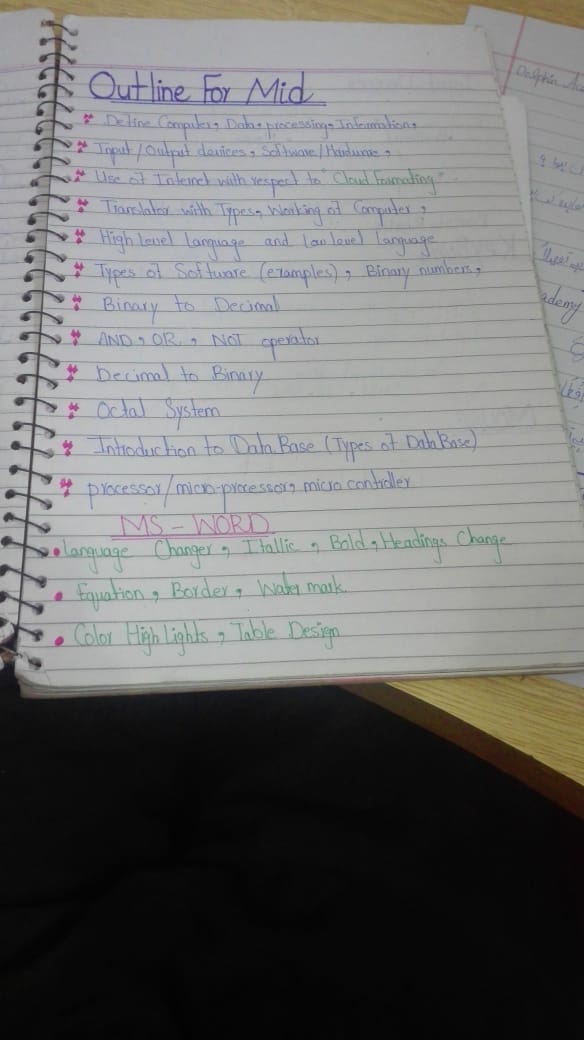 Outline For Mid
Define Computer, Data, processing, Information,
Input / Output devices, Software / Hardware,
Use of Internet with respect to "Cloud Formating"
Translator with Types, Working of Computer,
High Level Language and Low Level Language
Types of Software (examples), Binary numbers,
Binary to Decimal
AND, OR, NOT operator
Decimal to Binary
Octal System
Introduction to DataBase (Types of DataBase)
processor/micro-processor, micro controller
MS - WORD
Language Changer, Itallic, Bold, Headings Change
Equation, Border, Water mark.
Color High lights, Table Design
Dolphin